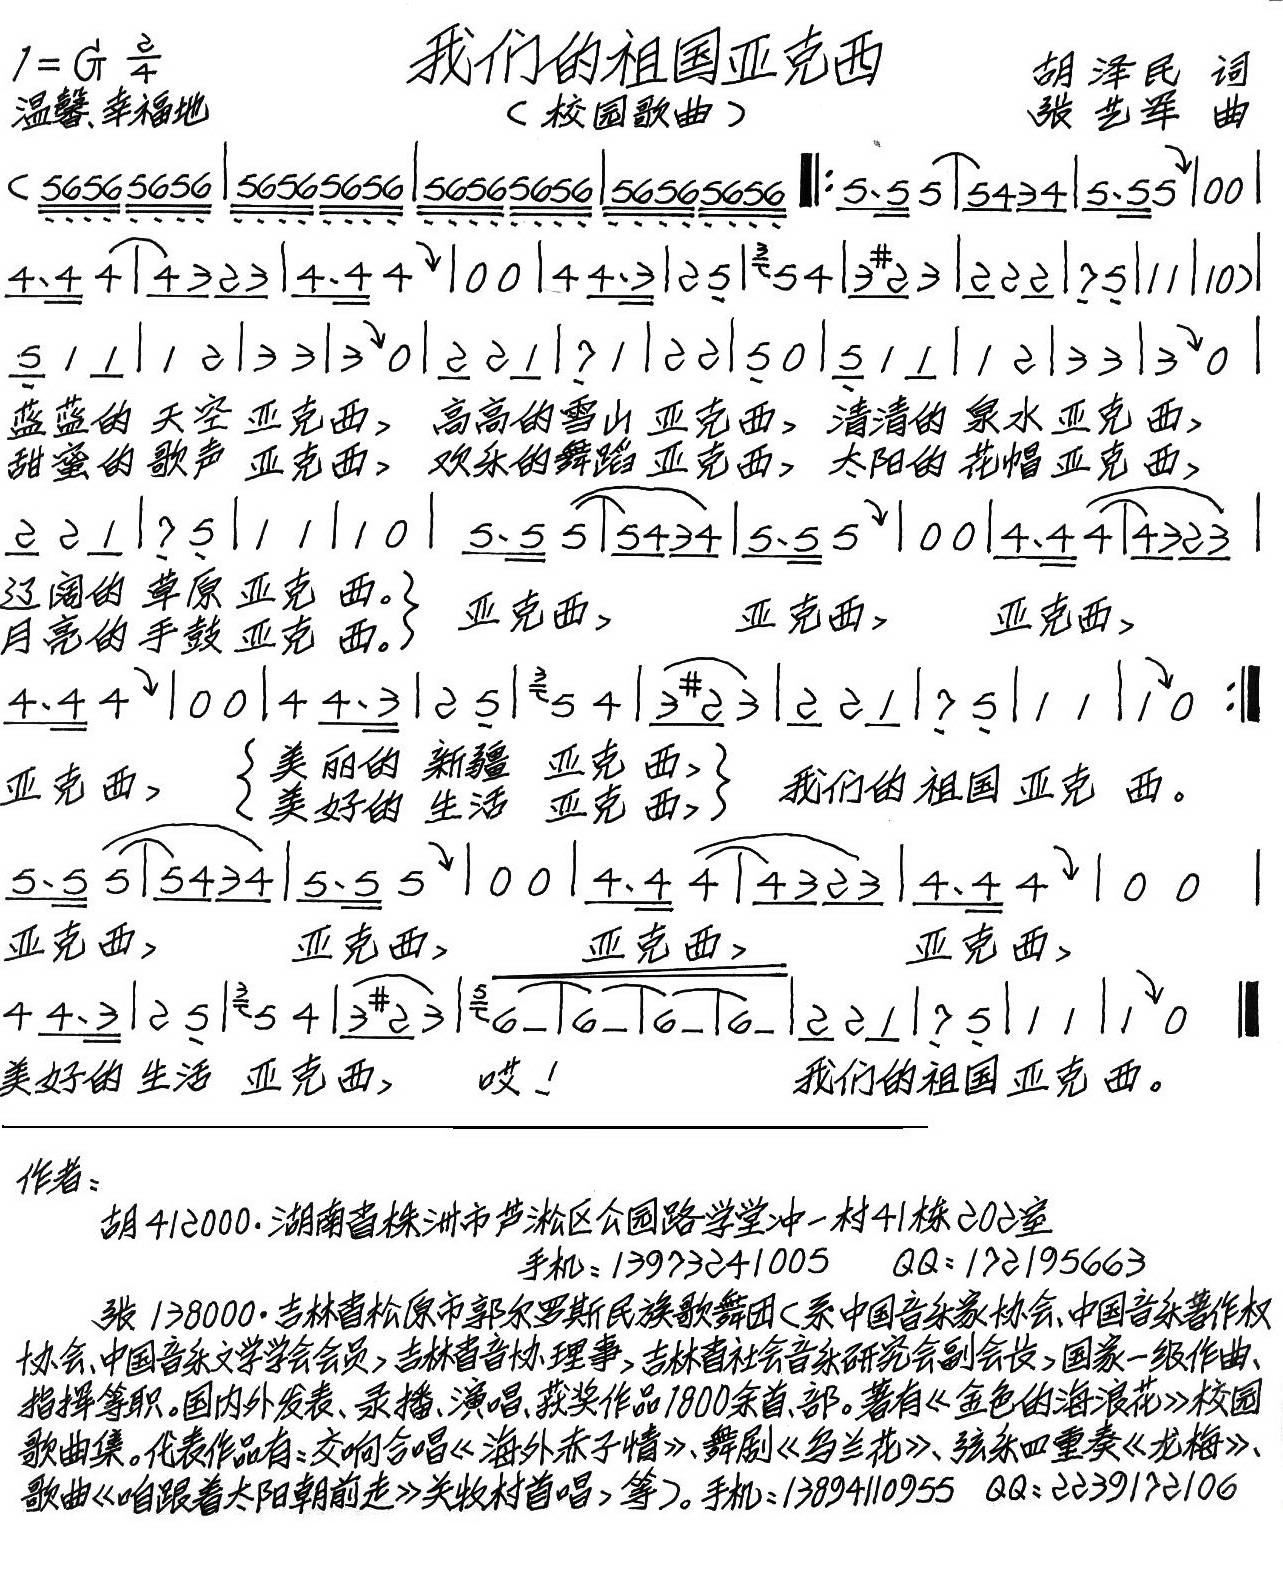 我们的祖国亚克西
1=G 2/4
胡泽民 词
温馨、幸福地
(校园歌曲)
张艺军 曲
(5656 5656|5656 5656|5656 5656|5656 5656‖:5·5 5|5434|5·5 5|00|
4·4 4|4323|4·4 4|00|4 4·3|2 5|3 5 4|3#2 3|2 2 2|7 5|1 1|1 0)|
5 1 1|1 2|3 3|3 0|2 2 1|7 1|2 2|5 0|5 1 1|1 2|3 3|3 0|
蓝蓝的 天空 亚克西, 高高的雪山 亚克西, 清清的 泉水 亚克西,
甜蜜的 歌声 亚克西, 欢乐的舞蹈 亚克西, 太阳的 花帽 亚克西,
2 2 1|7 5|1 1|1 0|5·5 5|5434|5·5 5|0 0|4·4 4|4323|
辽阔的 草原 亚克 西。} 亚克西, 亚克西, 亚克西,
月亮的 手鼓 亚克 西。}
4·4 4|0 0|4 4·3|2 5|3 5 4|3#2 3|2 2 1|7 5|1 1|1 0:‖
亚克西, {美丽的 新疆 亚克西,} 我们的祖国 亚克 西。
{美好的 生活 亚克西,}
5·5 5|5434|5·5 5|0 0|4·4 4|4323|4·4 4|0 0|
亚克西, 亚克西, 亚克西, 亚克西,
4 4·3|2 5|3 5 4|3#2 3|5 6-|6-|6-|6-|2 2 1|7 5|1 1|1 0‖
美好的 生活 亚克西, 哎! 我们的祖国 亚克 西。
作者:
胡412000·湖南省株洲市芦淞区公园路学堂冲一村41栋202室
手机:13973241005 QQ:172195663
张 138000·吉林省松原市郭尔罗斯民族歌舞团(系中国音乐家协会、中国音乐著作权
协会、中国音乐文学学会会员,吉林省音协理事,吉林省社会音乐研究会副会长,国家一级作曲、
指挥等职。国内外发表、录播、演唱、获奖作品1800余首、部。著有《金色的海浪花》校园
歌曲集。代表作品有:交响合唱《海外赤子情》、舞剧《乌兰花》、弦乐四重奏《龙梅》、
歌曲《咱跟着太阳朝前走》关牧村首唱,等)。手机:13894110955 QQ:2239172106